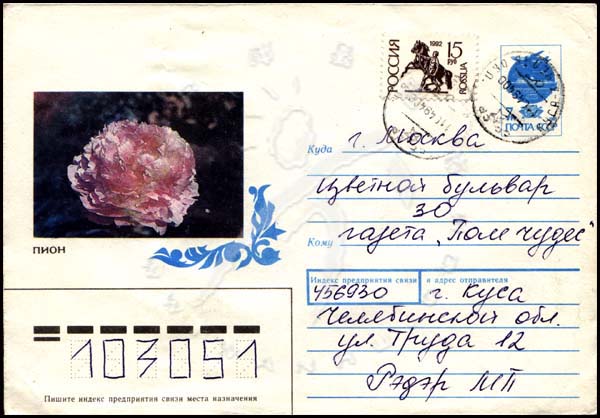 РОССИЯ 1992 15 РУБ ROSSIJA
7
ПОЧТА СССР
Куда г. Москва
Цветной бульвар
30
Кому газета „Поле чудес"
ПИОН
Индекс предприятия связи и адрес отправителя
456930 г. Куса
Челябинской обл.
ул. Труда 12
Рэдэр МП
103051
Пишите индекс предприятия связи места назначения